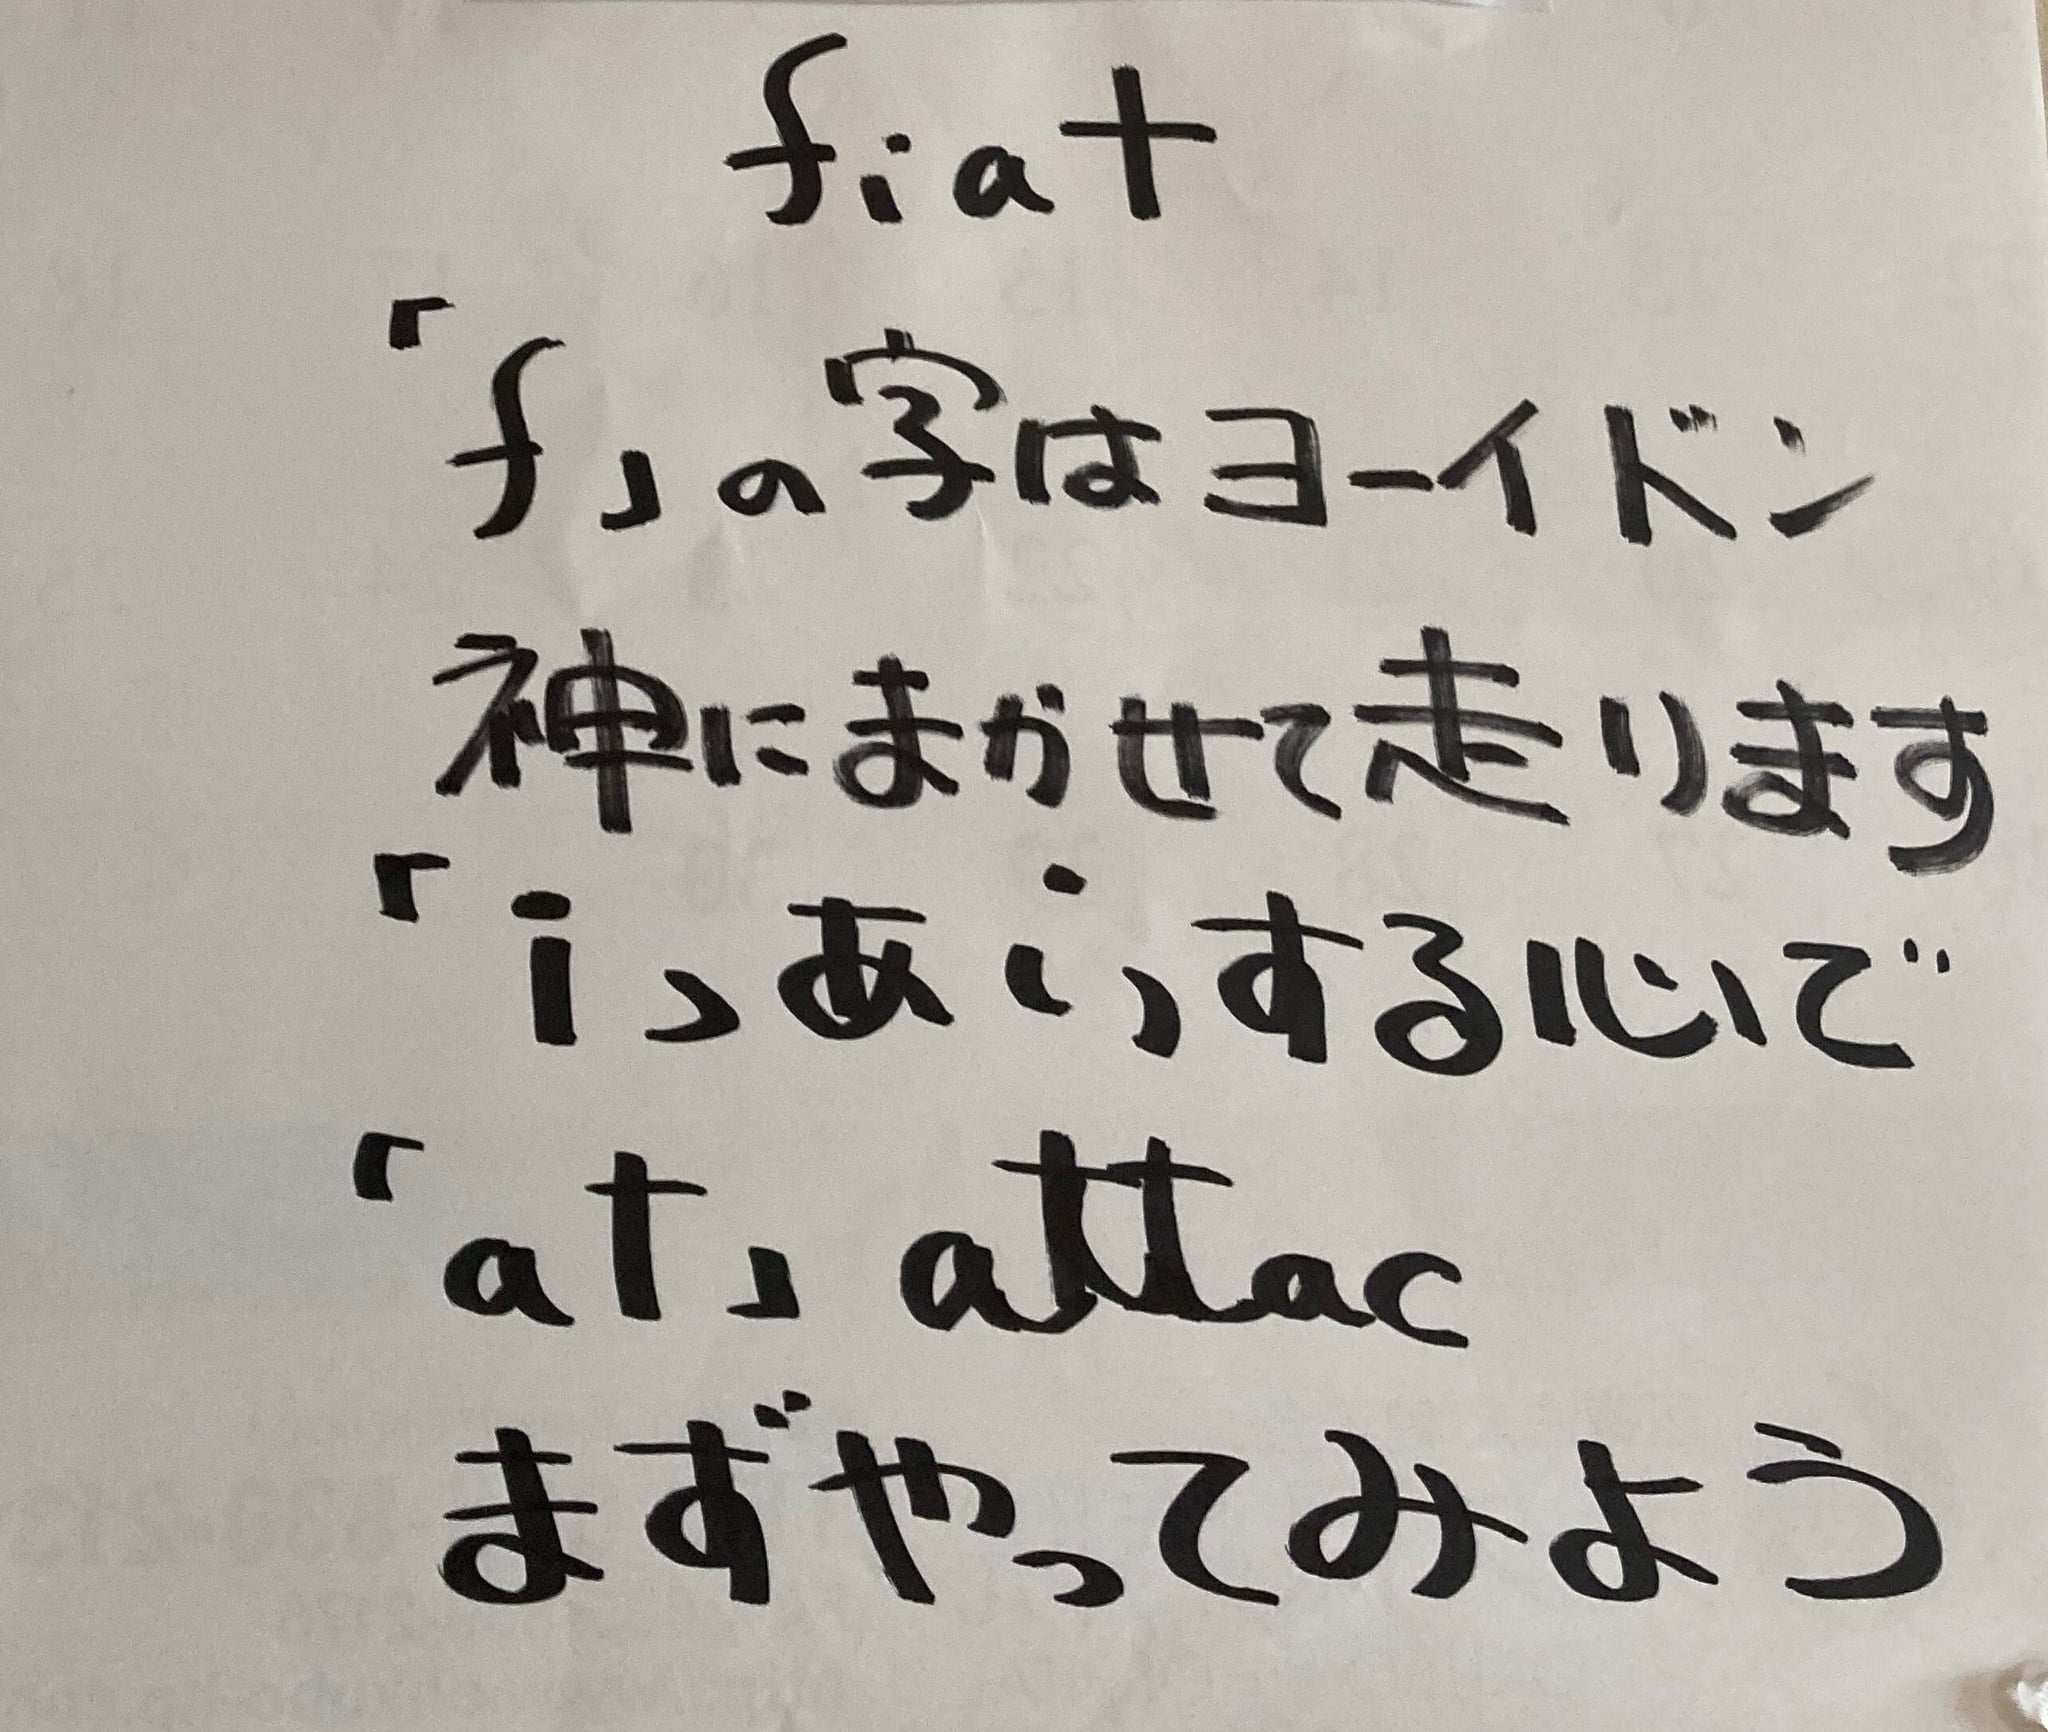 fiat
「f」の字はヨーイドン
神にまかせて走ります
「i」あいする心で
「at」attac
まずやってみよう